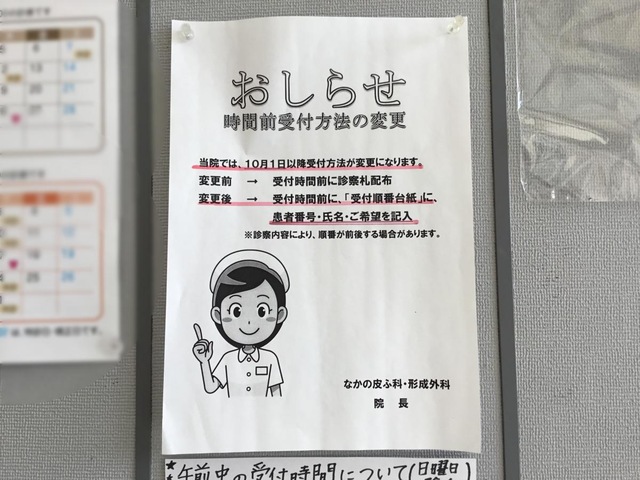 おしらせ
時間前受付方法の変更
当院では、10月1日以降受付方法が変更になります。
変更前 → 受付時間前に診察札配布
変更後 → 受付時間前に、「受付順番台紙」に、
患者番号・氏名・ご希望を記入
※診察内容により、順番が前後する場合があります。
なかの皮ふ科・形成外科
院 長
★午前中の受付時間について(日曜日